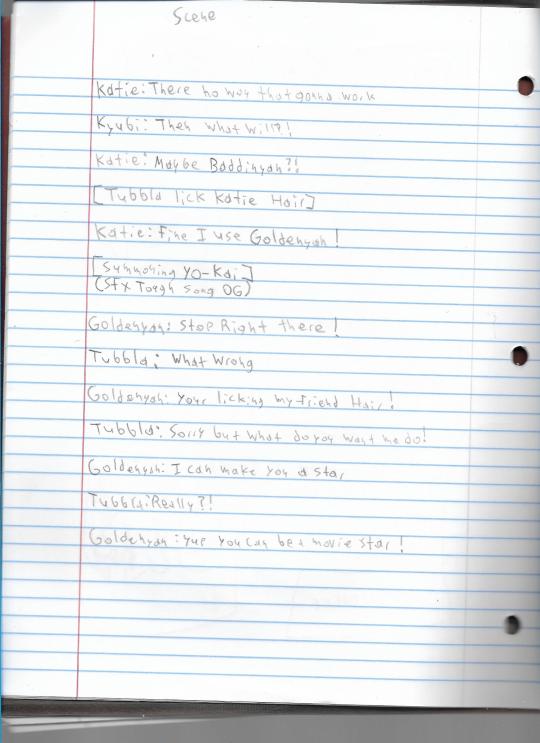 Scene
Katie: There no way that gonna work
Kyubi: Then what will?!
Katie: Maybe Baddinyan?!
[Tubbla lick Katie Hair]
Katie: Fine I use Goldenyan!
[Summoning Yo-Kai]
(SFX Tough Song OG)
Goldenyan: Stop Right there!
Tubbla: What Wrong
Goldenyan: Your licking my friend Hair!
Tubbla: Sorry but what do you want me do!
Goldenyan: I can make you a star
Tubbla: Really?!
Goldenyan: yup you can be a movie star!